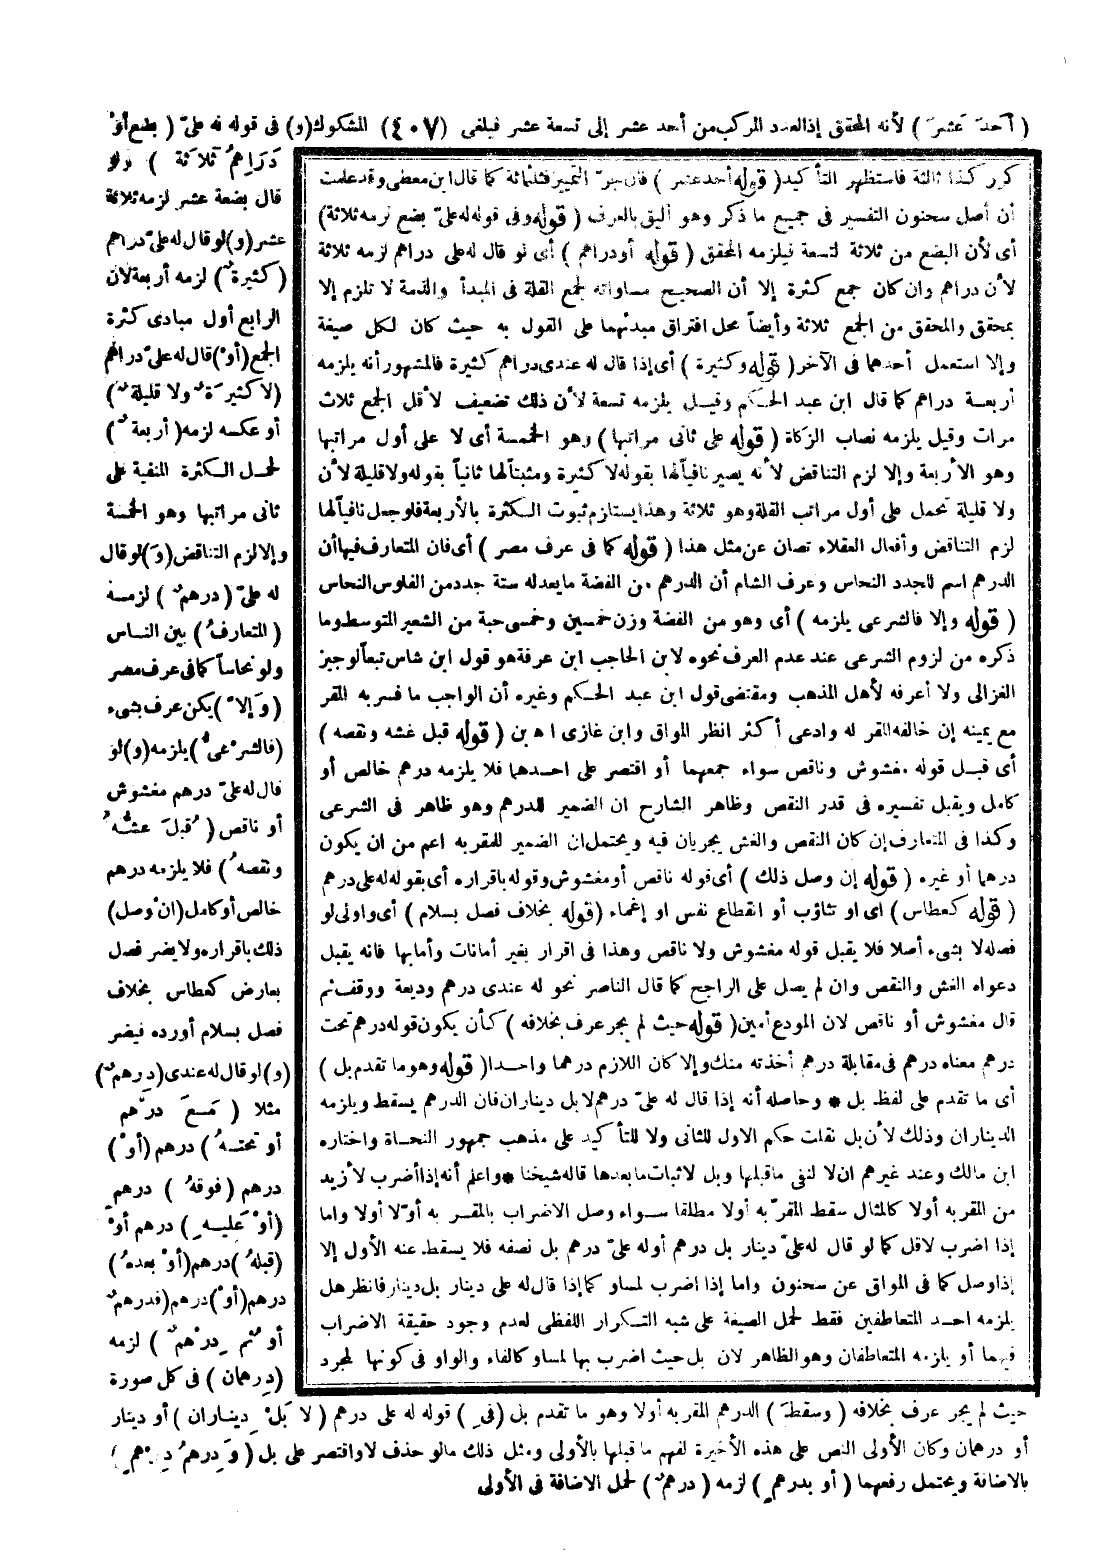 ( أحدَ عشرَ ) لأنه المحقق إذ العدد المركب من أحد عشر إلى تسعة عشر فيلغى (٤٠٧) المشكوك (و) فى قوله له علىّ ( بضع أوْ
دَرَاهمُ ثلاثة ) ولو
قال بضعة عشر لزمه ثلاثة
عشر (و) لو قال له علىّ دراهم
(كثيرة ) لزمه أربعة لان
الرابع أول مبادى كثرة
الجمع (أو) قال له علىّ دراهم
(لا كثيرَة ولا قليلة )
أو عكسه لزمه ( أربعة )
لحمل الكثرة المنفية على
ثانى مراتبها وهو الخمسة
وإلا لزم التناقض (وَ) لو قال
له علىّ ( درهم ) لزمه
( المتعارفُ ) بين الناس
ولو نحاساً كما فى عرف مصر
( وَإلا ) يكن عرف بشىء
(فالشرْعى ) يلزمه (و) لو
قال له علىّ درهم مغشوش
أو ناقص ( قُبلَ غشُّه
ونقصهُ ) فلا يلزمه درهم
خالص أو كامل (إنْ وصل)
ذلك باقراره ولا يضر فصل
بعارض كعطاس بخلاف
فصل بسلام أورده فيضر
(و) لو قال له عندى (دِرهم )
مثلا ( مَعَ درْهم
أو تحتهُ ) درهم (أوْ )
درهم (فوقهُ ) درهم
(أوْ عَليهِ ) درهم أوْ
(قبلهُ ) درهم (أوْ بعدهُ )
درهم (أوْ) درهم (فدرهم
أو ثم دِرْهم ) لزمه
(دِرهمان ) فى كل صورة
كرر كذا ثالثة فاستظهر التأكيد ( قوله أحد عشر ) فان جرّ التمييز فثلثمائة كما قال ابن معطى وقد علمت
أن أصل سحنون التفسير فى جميع ما ذكر وهو أليق بالعرف ( قوله وفى قوله له علىّ بضع لزمه ثلاثة)
أى لأن البضع من ثلاثة لتسعة فيلزمه المحقق ( قوله أو دراهم ) أى لو قال له على دراهم لزمه ثلاثة
لأن دراهم وان كان جمع كثرة إلا أن الصحيح مساواته لجمع القلة فى المبدأ والذمة لا تلزم إلا
بمحقق والمحقق من الجمع ثلاثة وأيضاً محل افتراق مبدئهما على القول به حيث كان لكل صيغة
وإلا استعمل أحدهما فى الآخر ( قوله وكثيرة ) أى إذا قال له عندى دراهم كثيرة فالمشهور أنه يلزمه
أربعة دراهم كما قال ابن عبد الحكم وقيل يلزمه تسعة لأن ذلك تضعيف لأقل الجمع ثلاث
مرات وقيل يلزمه نصاب الزكاة ( قوله على ثانى مراتبها ) وهو الخمسة أى لا على أول مراتبها
وهو الأربعة وإلا لزم التناقض لأنه يصير نافياً لها بقوله لا كثيرة ومثبتاً لها ثانياً بقوله ولا قليلة لأن
ولا قليلة تحمل على أول مراتب القلة وهو ثلاثة وهذا يستلزم ثبوت الكثرة بالأربعة فلو جعل نافياً لها
لزم التناقض وأفعال العقلاء تصان عن مثل هذا ( قوله كما فى عرف مصر ) أى فان المتعارف فيها أن
الدرهم اسم للجدد النحاس وعرف الشام أن الدرهم من الفضة ما يعدله ستة جدد من الفلوس النحاس
( قوله وإلا فالشرعى يلزمه ) أى وهو من الفضة وزن خمسين وخمسى حبة من الشعير المتوسط وما
ذكره من لزوم الشرعى عند عدم العرف نحوه لابن الحاجب ابن عرفة هو قول ابن شاس تبعاً لوجيز
الغزالى ولا أعرفه لأهل المذهب ومقتضى قول ابن عبد الحكم وغيره أن الواجب ما فسر به المقر
مع يمينه إن خالفه المقر له وادعى أكثر انظر المواق وابن غازى ا ه بن ( قوله قبل غشه ونقصه )
أى قبل قوله مغشوش وناقص سواء جمعهما أو اقتصر على احدهما فلا يلزمه درهم خالص أو
كامل ويقبل تفسيره فى قدر النقص وظاهر الشارح ان الضمير للدرهم وهو ظاهر فى الشرعى
وكذا فى المتعارف إن كان النقص والغش يجريان فيه ويحتمل ان الضمير للمقر به اعم من ان يكون
درهما أو غيره ( قوله إن وصل ذلك ) أى قوله ناقص أو مغشوش وقوله باقراره أى بقوله له على درهم
( قوله كعطاس ) اى او تثاؤب أو انقطاع نفس او إغماء ( قوله بخلاف فصل بسلام ) أى واولى لو
فصله لا بشىء أصلا فلا يقبل قوله مغشوش ولا ناقص وهذا فى اقرار بغير أمانات وأما بها فانه يقبل
دعواه الغش والنقص وان لم يصل على الراجح كما قال الناصر نحو له عندى درهم وديعة ووقف ثم
قال مغشوش أو ناقص لان المودع أمين ( قوله حيث لم يجر عرف بخلافه ) كأن يكون قوله درهم تحت
درهم معناه درهم فى مقابلة درهم أخذته منك وإلا كان اللازم درهما واحدا ( قوله وهو ما تقدم بل )
أى ما تقدم على لفظ بل * وحاصله أنه إذا قال له علىّ درهم لا بل ديناران فان الدرهم يسقط ويلزمه
الديناران وذلك لأن بل نقلت حكم الاول للثانى ولا للتأكيد على مذهب جمهور النحاة واختاره
ابن مالك وعند غيرهم ان لا لنفى ما قبلها وبل لاثبات ما بعدها قاله شيخنا * واعلم أنه إذا أضرب لأزيد
من المقر به أولا كالمثال سقط المقرّ به أولا مطلقا سواء وصل الاضراب بالمقر به أوّلا أولا واما
إذا اضرب لاقل كما لو قال له علىّ دينار بل درهم أو له علىّ درهم بل نصفه فلا يسقط عنه الأول إلا
إذا وصل كما فى المواق عن سحنون واما إذا اضرب لمساو كما إذا قال له على دينار بل دينار فانظر هل
يلزمه احد المتعاطفين فقط لحمل الصيغة على شبه التكرار اللفظى لعدم وجود حقيقة الاضراب
فيهما أو يلزمه المتعاطفان وهو الظاهر لان بل حيث اضرب بها لمساو كالفاء والواو فى كونها لمجرد
حيث لم يجر عرف بخلافه ( وسقطَ ) الدرهم المقر به أولا وهو ما تقدم بل (فى ) قوله له على درهم ( لا بَلْ ديناران ) أو دينار
أو درهمان وكان الأولى النص على هذه الأخيرة لفهم ما قبلها بالأولى ومثل ذلك ما لو حذف لا واقتصر على بل ( وَدِرهمُ دِرْهمٍ )
بالاضافة ويحتمل رفعهما ( أو بدرهمٍ ) لزمه ( درهم ) لحمل الاضافة فى الأولى